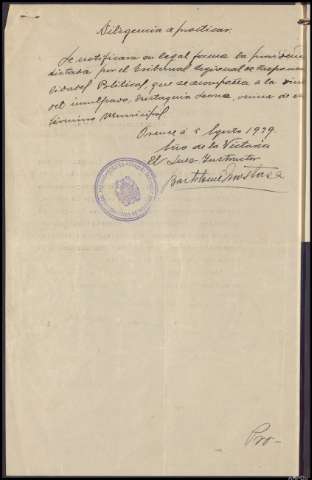 Diligencia a practicar.
Se notificara en legal forma la providencia
dictada por el Tribunal Regional de Respon
sabilidad Politica, que se acompaña a la
del inculpado, Eustaquia vecina de
termino Municipal
Orense a 5 Agosto 1939.
Año de la Victoria
El Juez Instructor
Bartolome
Pro-